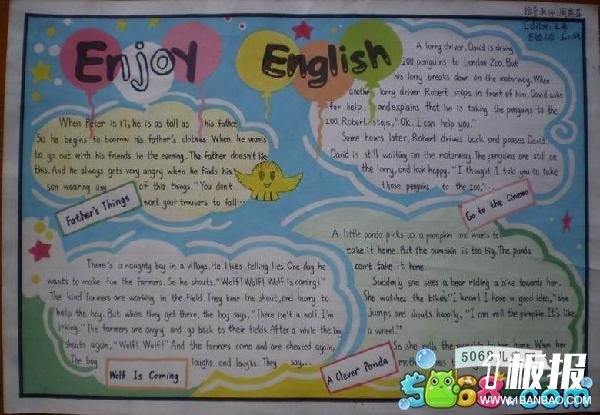 Enjoy English
When Peter is 17, he is as tall as his father.
So he begins to borrow his father's clothes When he wants
to go out with his friends in the evening. The father doesn't like
this. And he always gets very angry when he finds his
son wearing any of this things. "You don't
want your trousers to fall
Father's Things
A lorry driver, David is driving
200 penguins to London Zoo. But
his lorry breaks down on the motorway. When
another lorry driver Robert stops in front of him. David asks
for help and explains that he is taking the penguins to the
zoo. Robert says, "Ok. I can help you."
Some hours later, Robert drives back and passes David.
David is still waiting on the motorway. The penguins are still on
the lorry, and look happy. "I thought I told you to take
those penguins to the zoo."
Go to the Cinema
There is a naughty boy in a village. He likes telling lies One day he
wants to make fun the farmers. So he shouts, "Wolf! Wolf! Wolf is coming!"
The kind farmers are working in the field. They hear the shout, and hurry to
help the boy. But when they get there, the boy says, "There isn't a wolf I'm
joking." The farmers are angry and go back to their fields. After a while the boy
shouts again, "Wolf! Wolf!" And the farmers come and are cheated again.
The boy laughs and laughs. They say...
Wolf Is Coming
A little panda picks up a pumpkin and wants to
take it home. But the pumpkin is too big. The panda
can't take it home.
Suddenly she sees a bear riding a bike towards her.
She watches the bike. "I know! I have a good idea," she
jumps and shouts happily, "I can roll the pumpkin. It's like
a wheel."
So she rolls the When her
mother
A Clever Panda
5068儿童网
板报
WWW.1BANBAO.COM